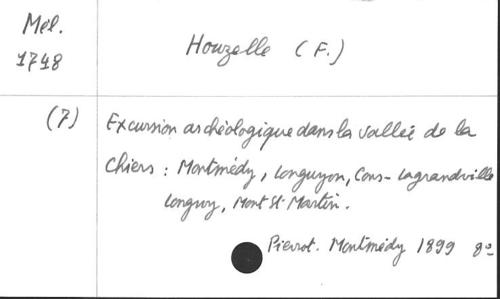 Mél.
1748
Houzelle (F.)
(7)
Excursion archéologique dans la vallée de la
Chiers : Montmédy, Longuyon, Cons-Lagrandville
Longwy, Mont St Martin.
Pierrot. Montmédy 1899 8º